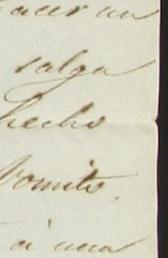 acer un
salga
hecho
Vomito,
á una